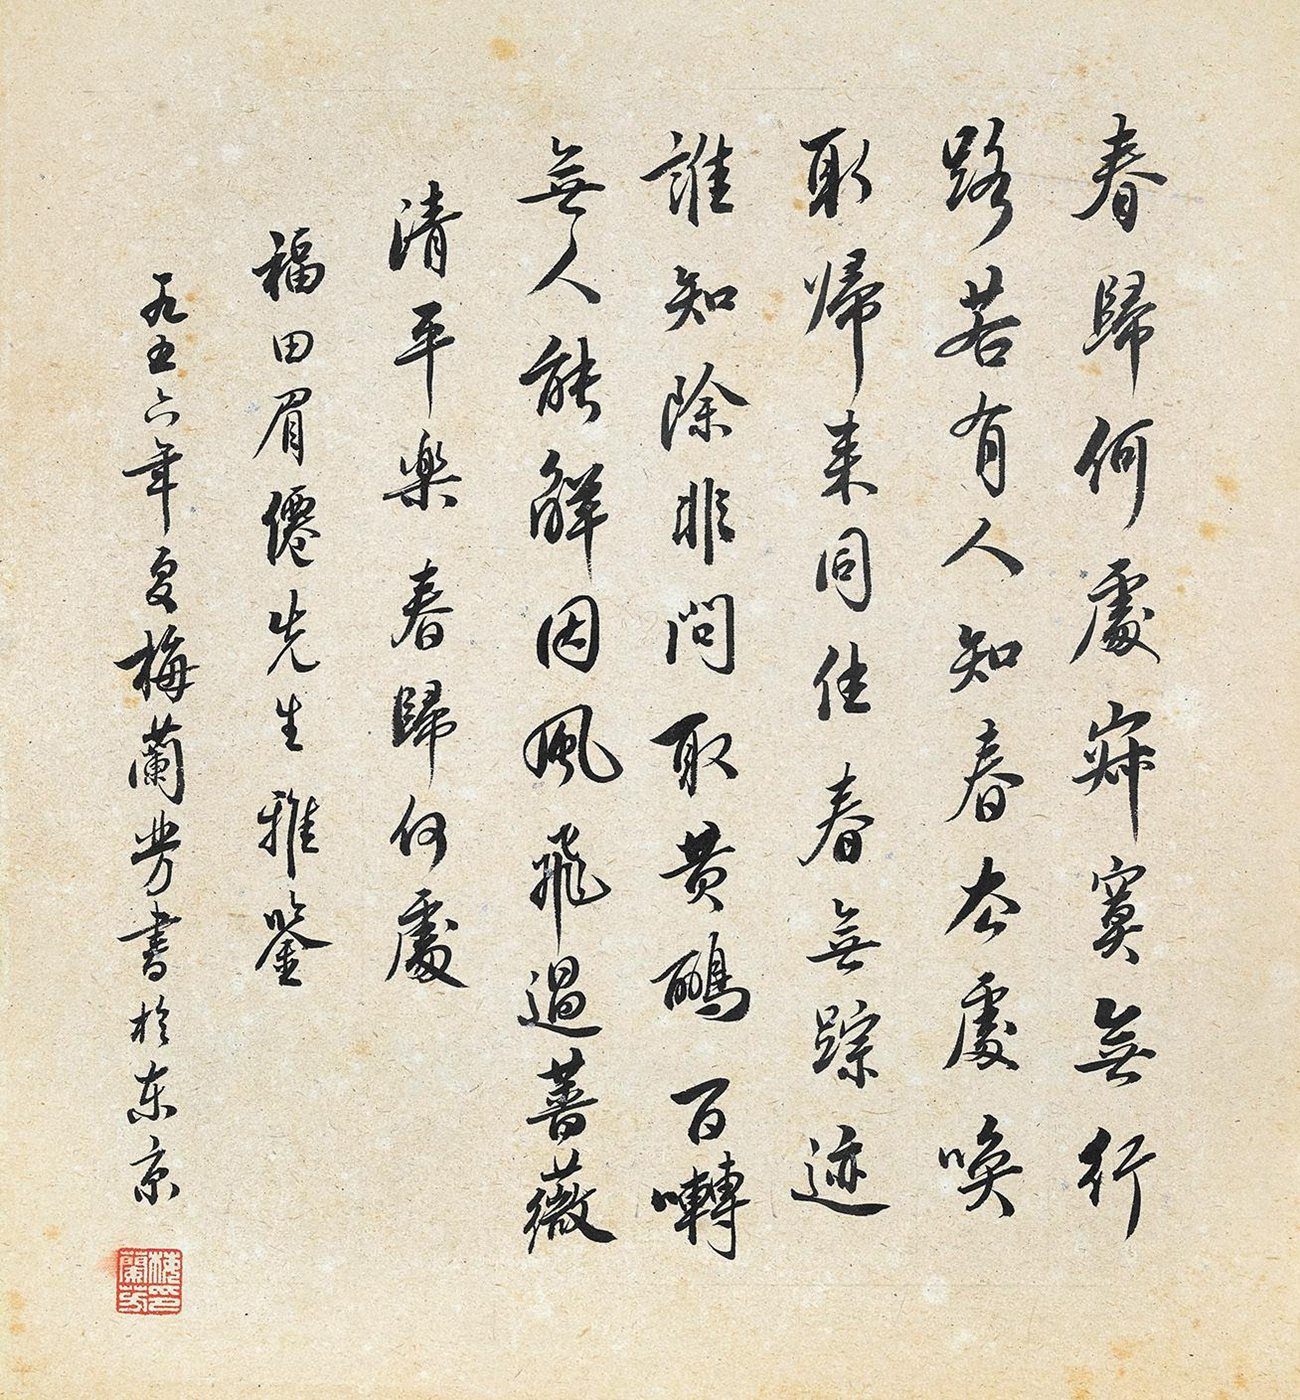 春歸何處寂寞無行
路若有人知春去處喚
取歸来同住春無踪迹
誰知除非問取黄鸝百囀
無人能解因風飛過薔薇
清平樂春歸何處
福田眉僊先生雅鑒
一九五六年夏梅蘭芳書於东京
梅蘭芳印